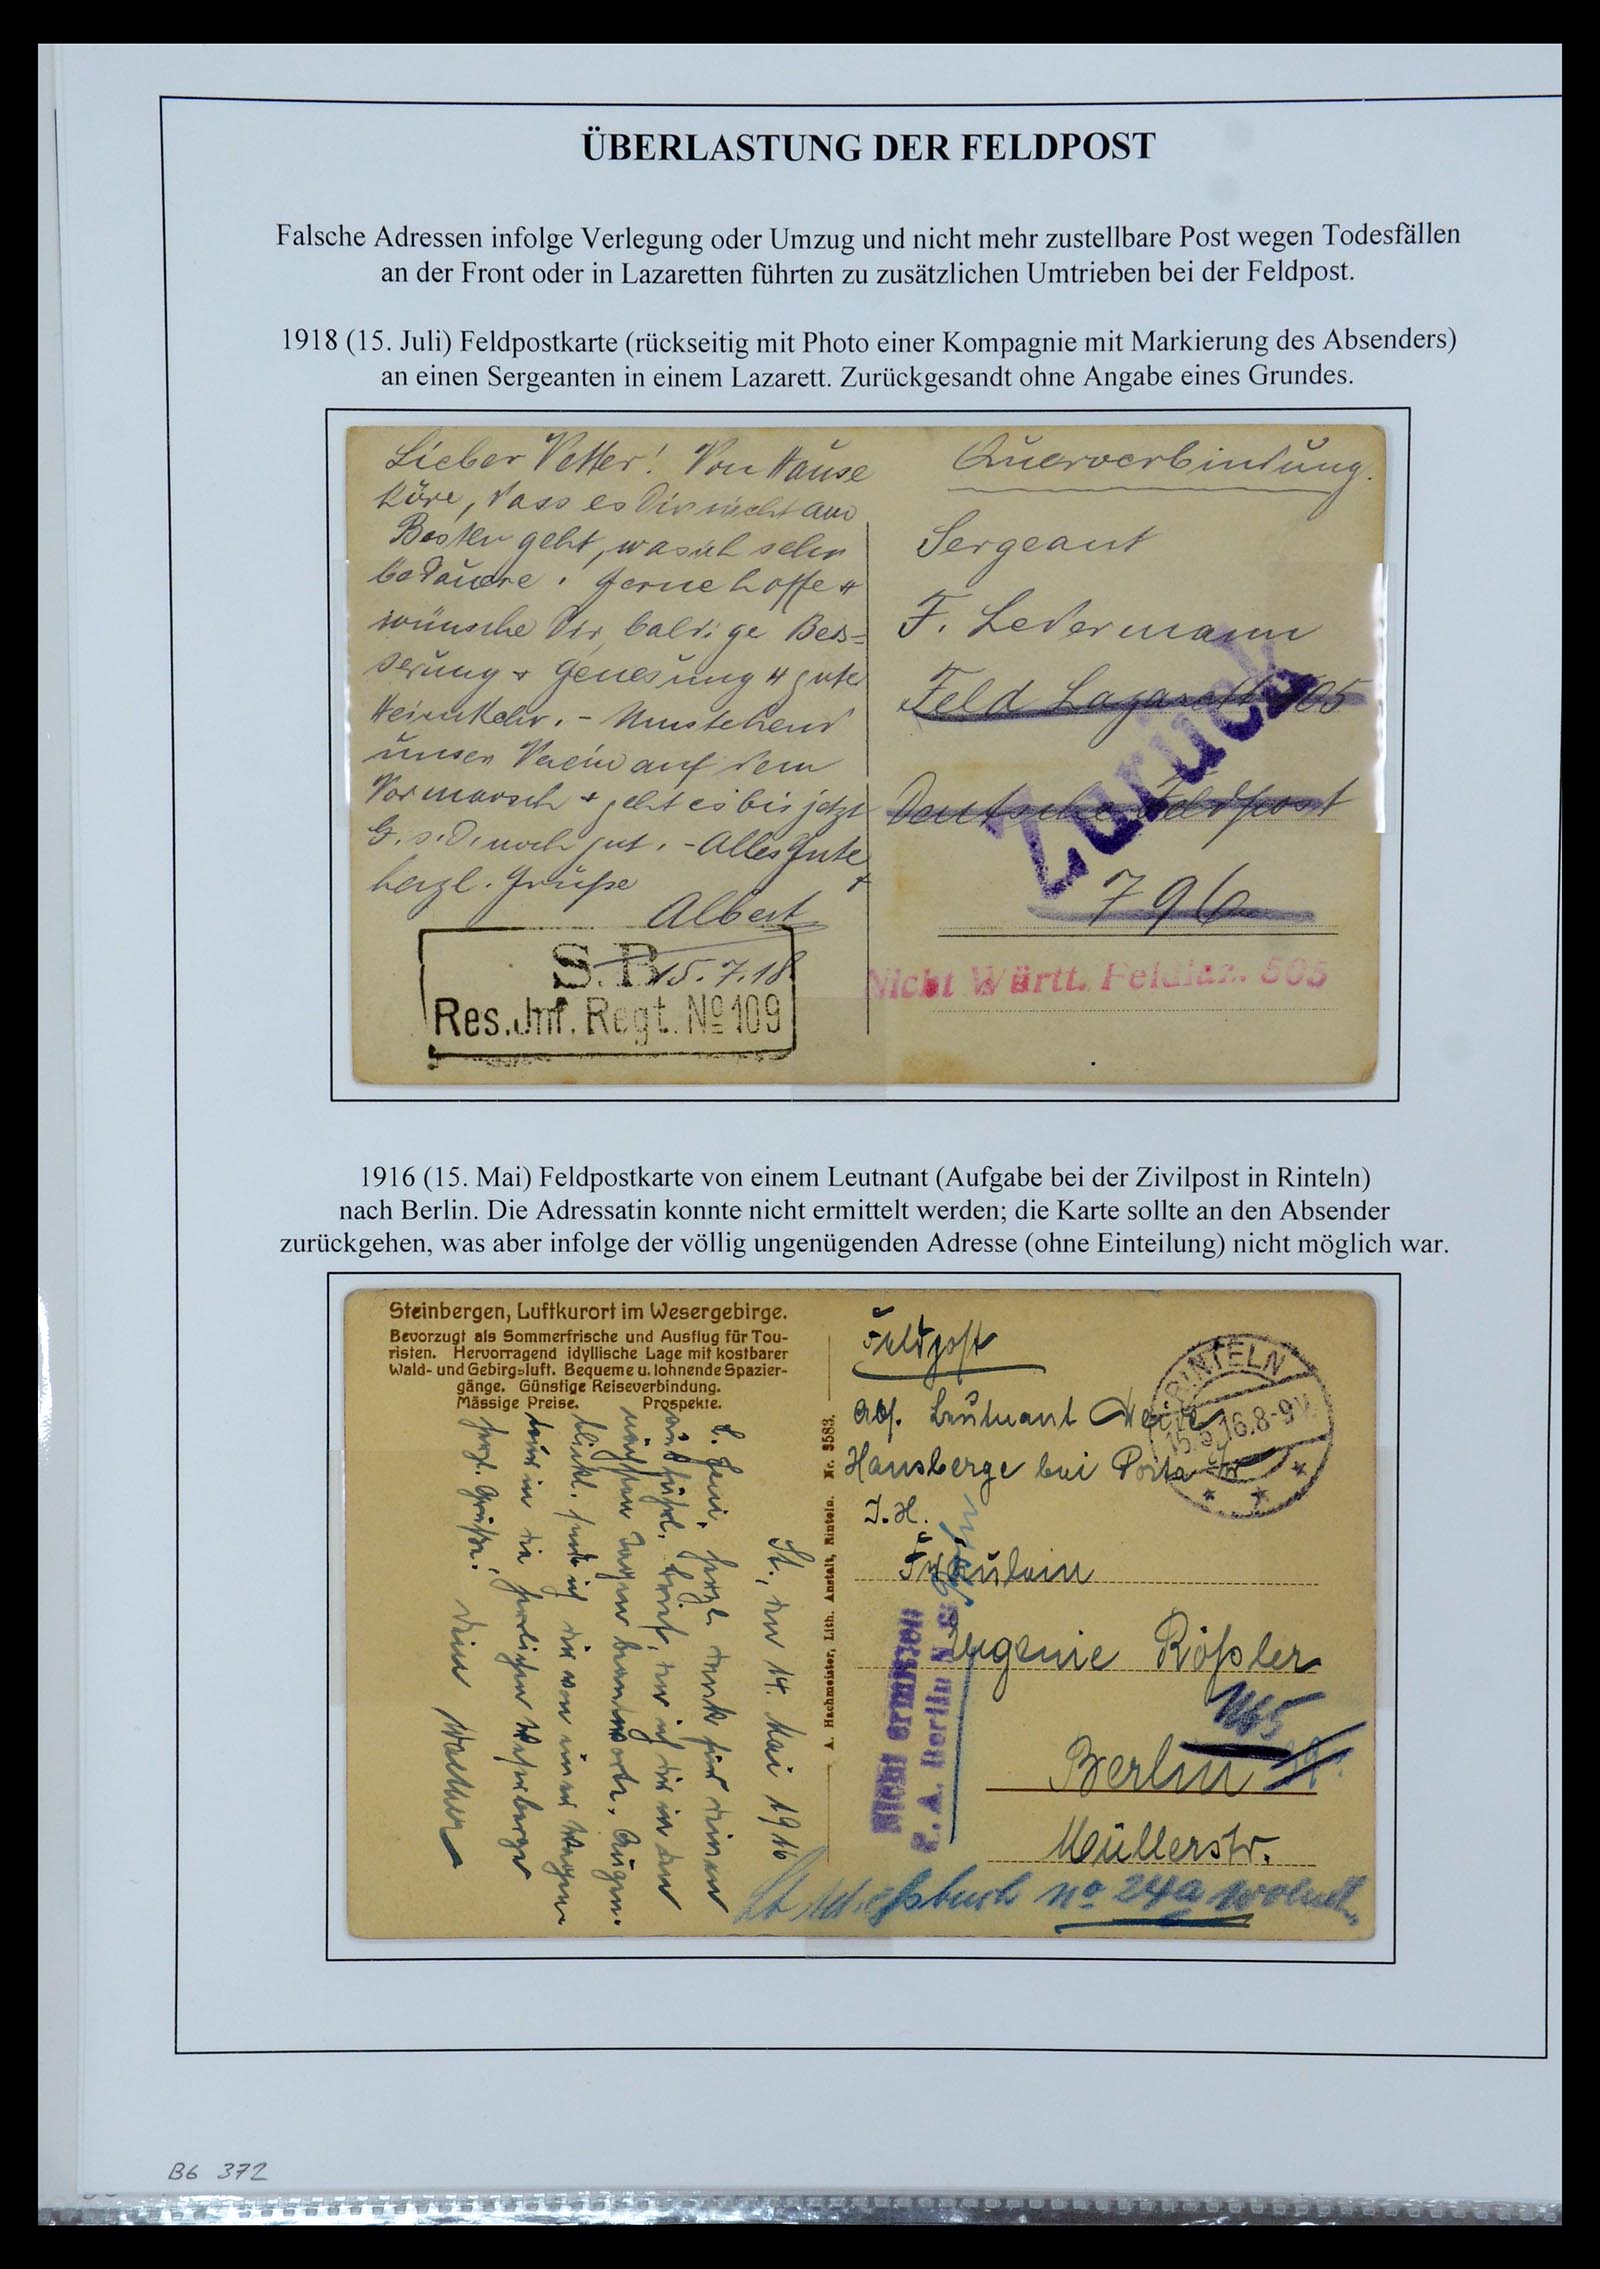 ÜBERLASTUNG DER FELDPOST
Falsche Adressen infolge Verlegung oder Umzug und nicht mehr zustellbare Post wegen Todesfällen
an der Front oder in Lazaretten führten zu zusätzlichen Umtrieben bei der Feldpost.
1918 (15. Juli) Feldpostkarte (rückseitig mit Photo einer Kompagnie mit Markierung des Absenders)
an einen Sergeanten in einem Lazarett. Zurückgesandt ohne Angabe eines Grundes.
Lieber Vetter! Von Hause
höre, dass es Dir nicht am
Besten geht, was ich sehr
bedauere. Gerne hoffe u
wünsche Dir baldige Bes=
serung + Genesung u gute
Heimkehr. - Umstehend
unser Verein auf dem
Vormarsch + geht es bis jetzt
G. s. D. noch gut. - Alles Gute +
herzl. Grüße
Albert
15.7.18
S. B.
Res. Inf. Regt. № 109
Querverbindung.
Sergeant
F. Ledermann
Feld Lazarett 505
Deutsche Feldpost
796
Zurück
Nicht Württ. Feldlaz. 505
1916 (15. Mai) Feldpostkarte von einem Leutnant (Aufgabe bei der Zivilpost in Rinteln)
nach Berlin. Die Adressatin konnte nicht ermittelt werden; die Karte sollte an den Absender
zurückgehen, was aber infolge der völlig ungenügenden Adresse (ohne Einteilung) nicht möglich war.
Steinbergen, Luftkurort im Wesergebirge.
Bevorzugt als Sommerfrische und Ausflug für Tou-
risten. Hervorragend idyllische Lage mit kostbarer
Wald- und Gebirgsluft. Bequeme u. lohnende Spazier-
gänge. Günstige Reiseverbindung.
Mässige Preise. Prospekte.
St., den 14. Mai 1916
herzl. Dank für deinen
ausführl. Brief, den ich dir in den
nächsten Tagen beantworte. Augen-
blickl. sende ich dir von einer
in die herrlichen Weserberge
herzl. Grüße. Dein
A. Hachmeister, Lith. Anstalt, Rinteln. Nr. 3583.
Feldpost
Abs. Leutnant
Hausberge bei Porta
J.H.
Fräulein
Eugenie Rößler
Berlin
Müllerstr.
RINTELN
15.5.16.8-9V.
Nicht ermittelt
P. A. Berlin N
N65
no 24a
B6 372